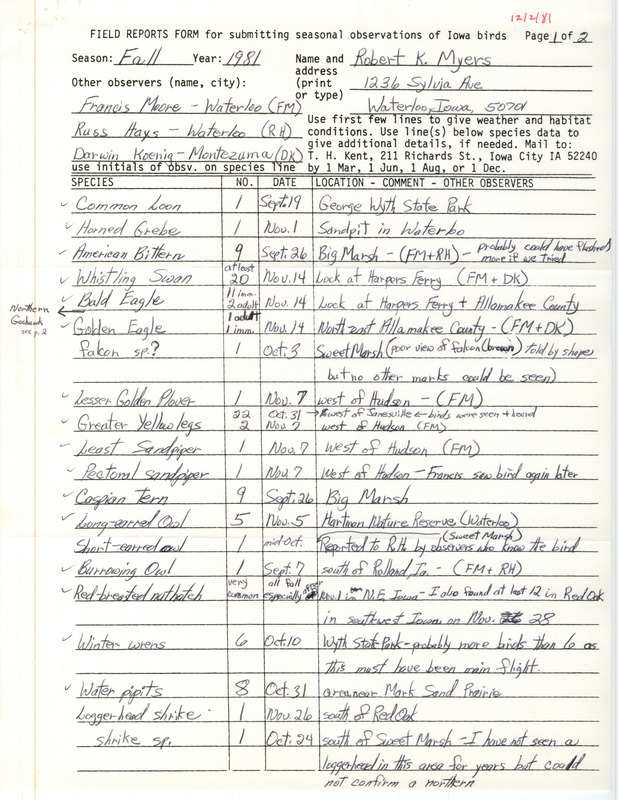 12/2/81
FIELD REPORTS FORM for submitting seasonal observations of Iowa birds Page 1 of 2
Season: Fall Year: 1981 Name and address (print or type) Robert K. Myers
1236 Sylvia Ave.
Waterloo, Iowa, 50701
Other observers (name, city):
Francis Moore - Waterloo (FM)
Russ Hays - Waterloo (RH)
Darwin Koenig - Montezuma (DK)
use initials of obsv. on species line
Use first few lines to give weather and habitat
conditions. Use line(s) below species data to
give additional details, if needed. Mail to:
T. H. Kent, 211 Richards St., Iowa City IA 52240
by 1 Mar, 1 Jun, 1 Aug, or 1 Dec.
SPECIES NO. DATE LOCATION - COMMENT - OTHER OBSERVERS
✓ Common Loon 1 Sept. 19 George Wyth State Park
✓ Horned Grebe 1 Nov. 1 Sandpit in Waterloo
✓ American Bittern 9 Sept. 26 Big Marsh - (FM+RH) - probably could have flushed more if we tried
✓ Whistling Swan at least 20 Nov. 14 Lock at Harpers Ferry (FM + DK)
✓ Bald Eagle 11 imm. 2 adult Nov. 14 Lock at Harpers Ferry + Allamakee County
Northern Goshawk see p. 2
✓ Golden Eagle 1 adult 1 imm. Nov. 14 Northeast Allamakee County - (FM + DK)
falcon sp.? 1 Oct. 3 Sweet Marsh (poor view of falcon (brown) told by shape
but no other marks could be seen)
✓ Lesser Golden Plover 1 Nov. 7 west of Hudson - (FM)
✓ Greater Yellowlegs 22 Oct. 31 → west of Janesville ← birds were seen + heard
2 Nov. 7 west of Hudson (FM)
✓ Least Sandpiper 1 Nov. 7 West of Hudson (FM)
✓ Pectoral sandpiper 1 Nov. 7 West of Hudson - Francis saw bird again later
✓ Caspian Tern 9 Sept. 26 Big Marsh
✓ Long-earred Owl 5 Nov. 5 Hartman Nature Reserve (Waterloo)
Short-earred owl 1 mid-Oct. Reported to R.H. by observers who know the bird (Sweet Marsh)
✓ Burrowing Owl 1 Sept. 7 south of Rolland, Ia. - (FM + RH)
✓ Red-breasted nuthatch very common all fall especially after Nov. 1 in N.E. Iowa - I also found at last 12 in Red Oak
in southwest Iowa on Nov. 28
✓ Winter wrens 6 Oct. 10 Wyth State Park - probably more birds than 6 as
this must have been main flight.
✓ Water pipits 8 Oct. 31 area near Mark Sand Prairie
Loggerhead shrike 1 Nov. 26 south of Red Oak
shrike sp. 1 Oct. 24 south of Sweet Marsh - I have not seen a
loggerhead in this area for years but could
not confirm a northern